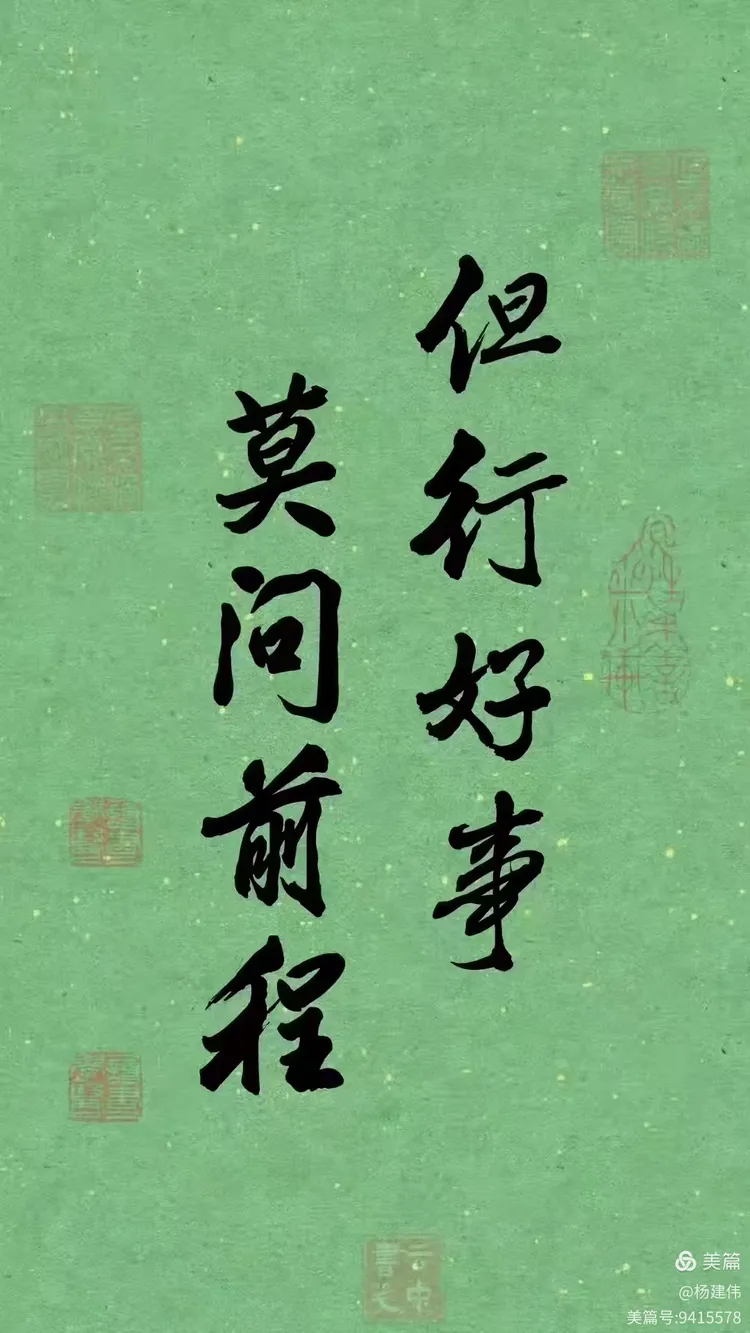 但行好事
莫问前程
美篇
@杨建伟
美篇号:9415578